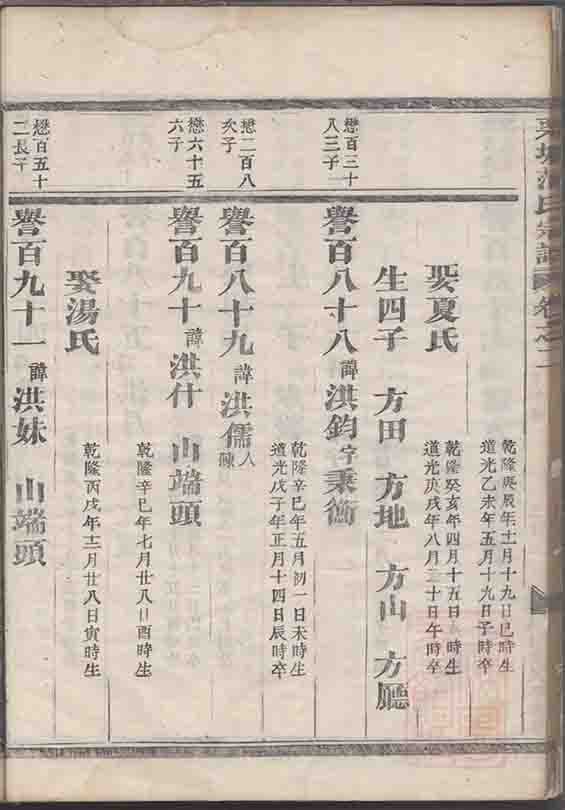 氏宗譜 卷之二
乾隆庚辰年十一月十九日巳時生
道光乙未年五月十九日子時卒
娶夏氏
乾隆癸亥年四月十五日 時生
道光庚戌年八月二十日午時卒
生四子 方田 方地 方山 方廳
懋百三十八三子
譽百八十八 諱洪鈞 字秉衡
乾隆辛巳年五月初一日未時生
道光戊子年正月十四日辰時卒
懋二百八 子
譽百八十九 諱洪儒
懋六十五六子
譽百九十 諱洪什 山端頭
乾隆辛巳年七月廿八日酉時生
娶湯氏
乾隆丙戌年十二月廿八日寅時生
懋百五十二長子
譽百九十一 諱洪妹 山端頭